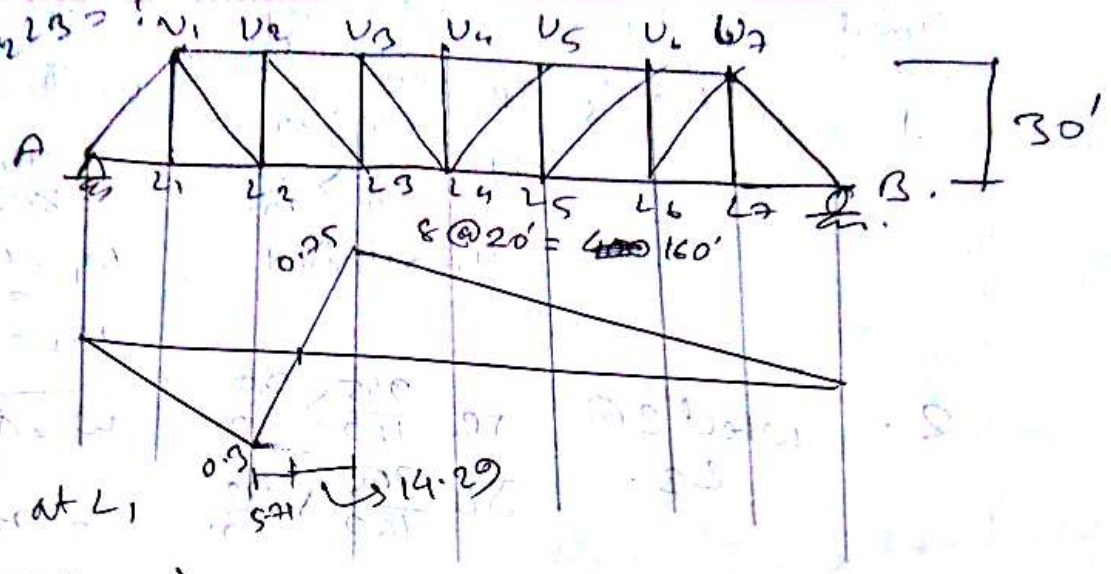 U1 U2 U3 U4 U5 U6 U7
A
30'
L1 L2 L3 L4 L5 L6 L7 B.
8 @ 20' = 160'
0.75
0.3
5.71 14.29
at L1